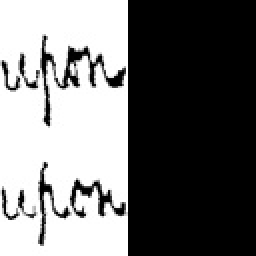 upon
upon